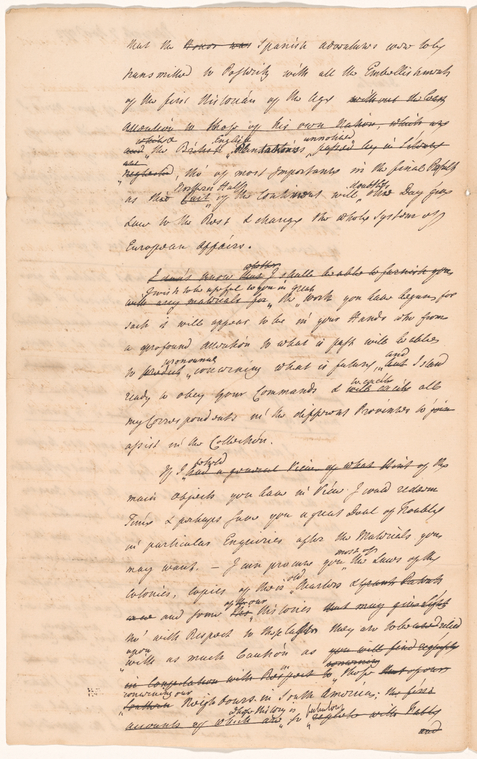 that the Honor was Spanish adventures were to be
transmitted to Posterity with all the Embellishments
of the first Historian of the Age without the least
attention to those of his own Nation, which was
whilst English unnoticed
and the British Plantations passed by in Silence
are
neglected, tho' of most Importance in the final Result
Northern Half doubtless
as this Part of the Continent will one Day give
Law to the Rest & change the whole System of
European Affairs.
whether
I can't know that I shall be able to furnish you
I wish to be useful to you in great
with any materials for the Work you have begun, for
such it will appear to be in your Hands who from
a profound attention to what is past will be able
pronounce and
to predict concerning what is future, but I stand
to excite
ready to obey your Commands & will incite all
my Correspondents in the different Provinces to join
assist in the Collection.
If I had a prudent View of what Hint of the
main Objects you have in View I could redeem
Time & perhaps save you a great Deal of Trouble
in particular Enquiries after the Materials you
most of
may want. — I can procure you the Laws of the
old
Colonies, copies of their Charters & Grants
of their own
and some Histories that may
tho' with Respect to these they are to be
upon
with as much Caution as you will find
in Comparison with Respect to those that
concerning our
Southern Neighbours in South America, the first
whose History is fabulous
accounts of which are, so replete with Fable
and